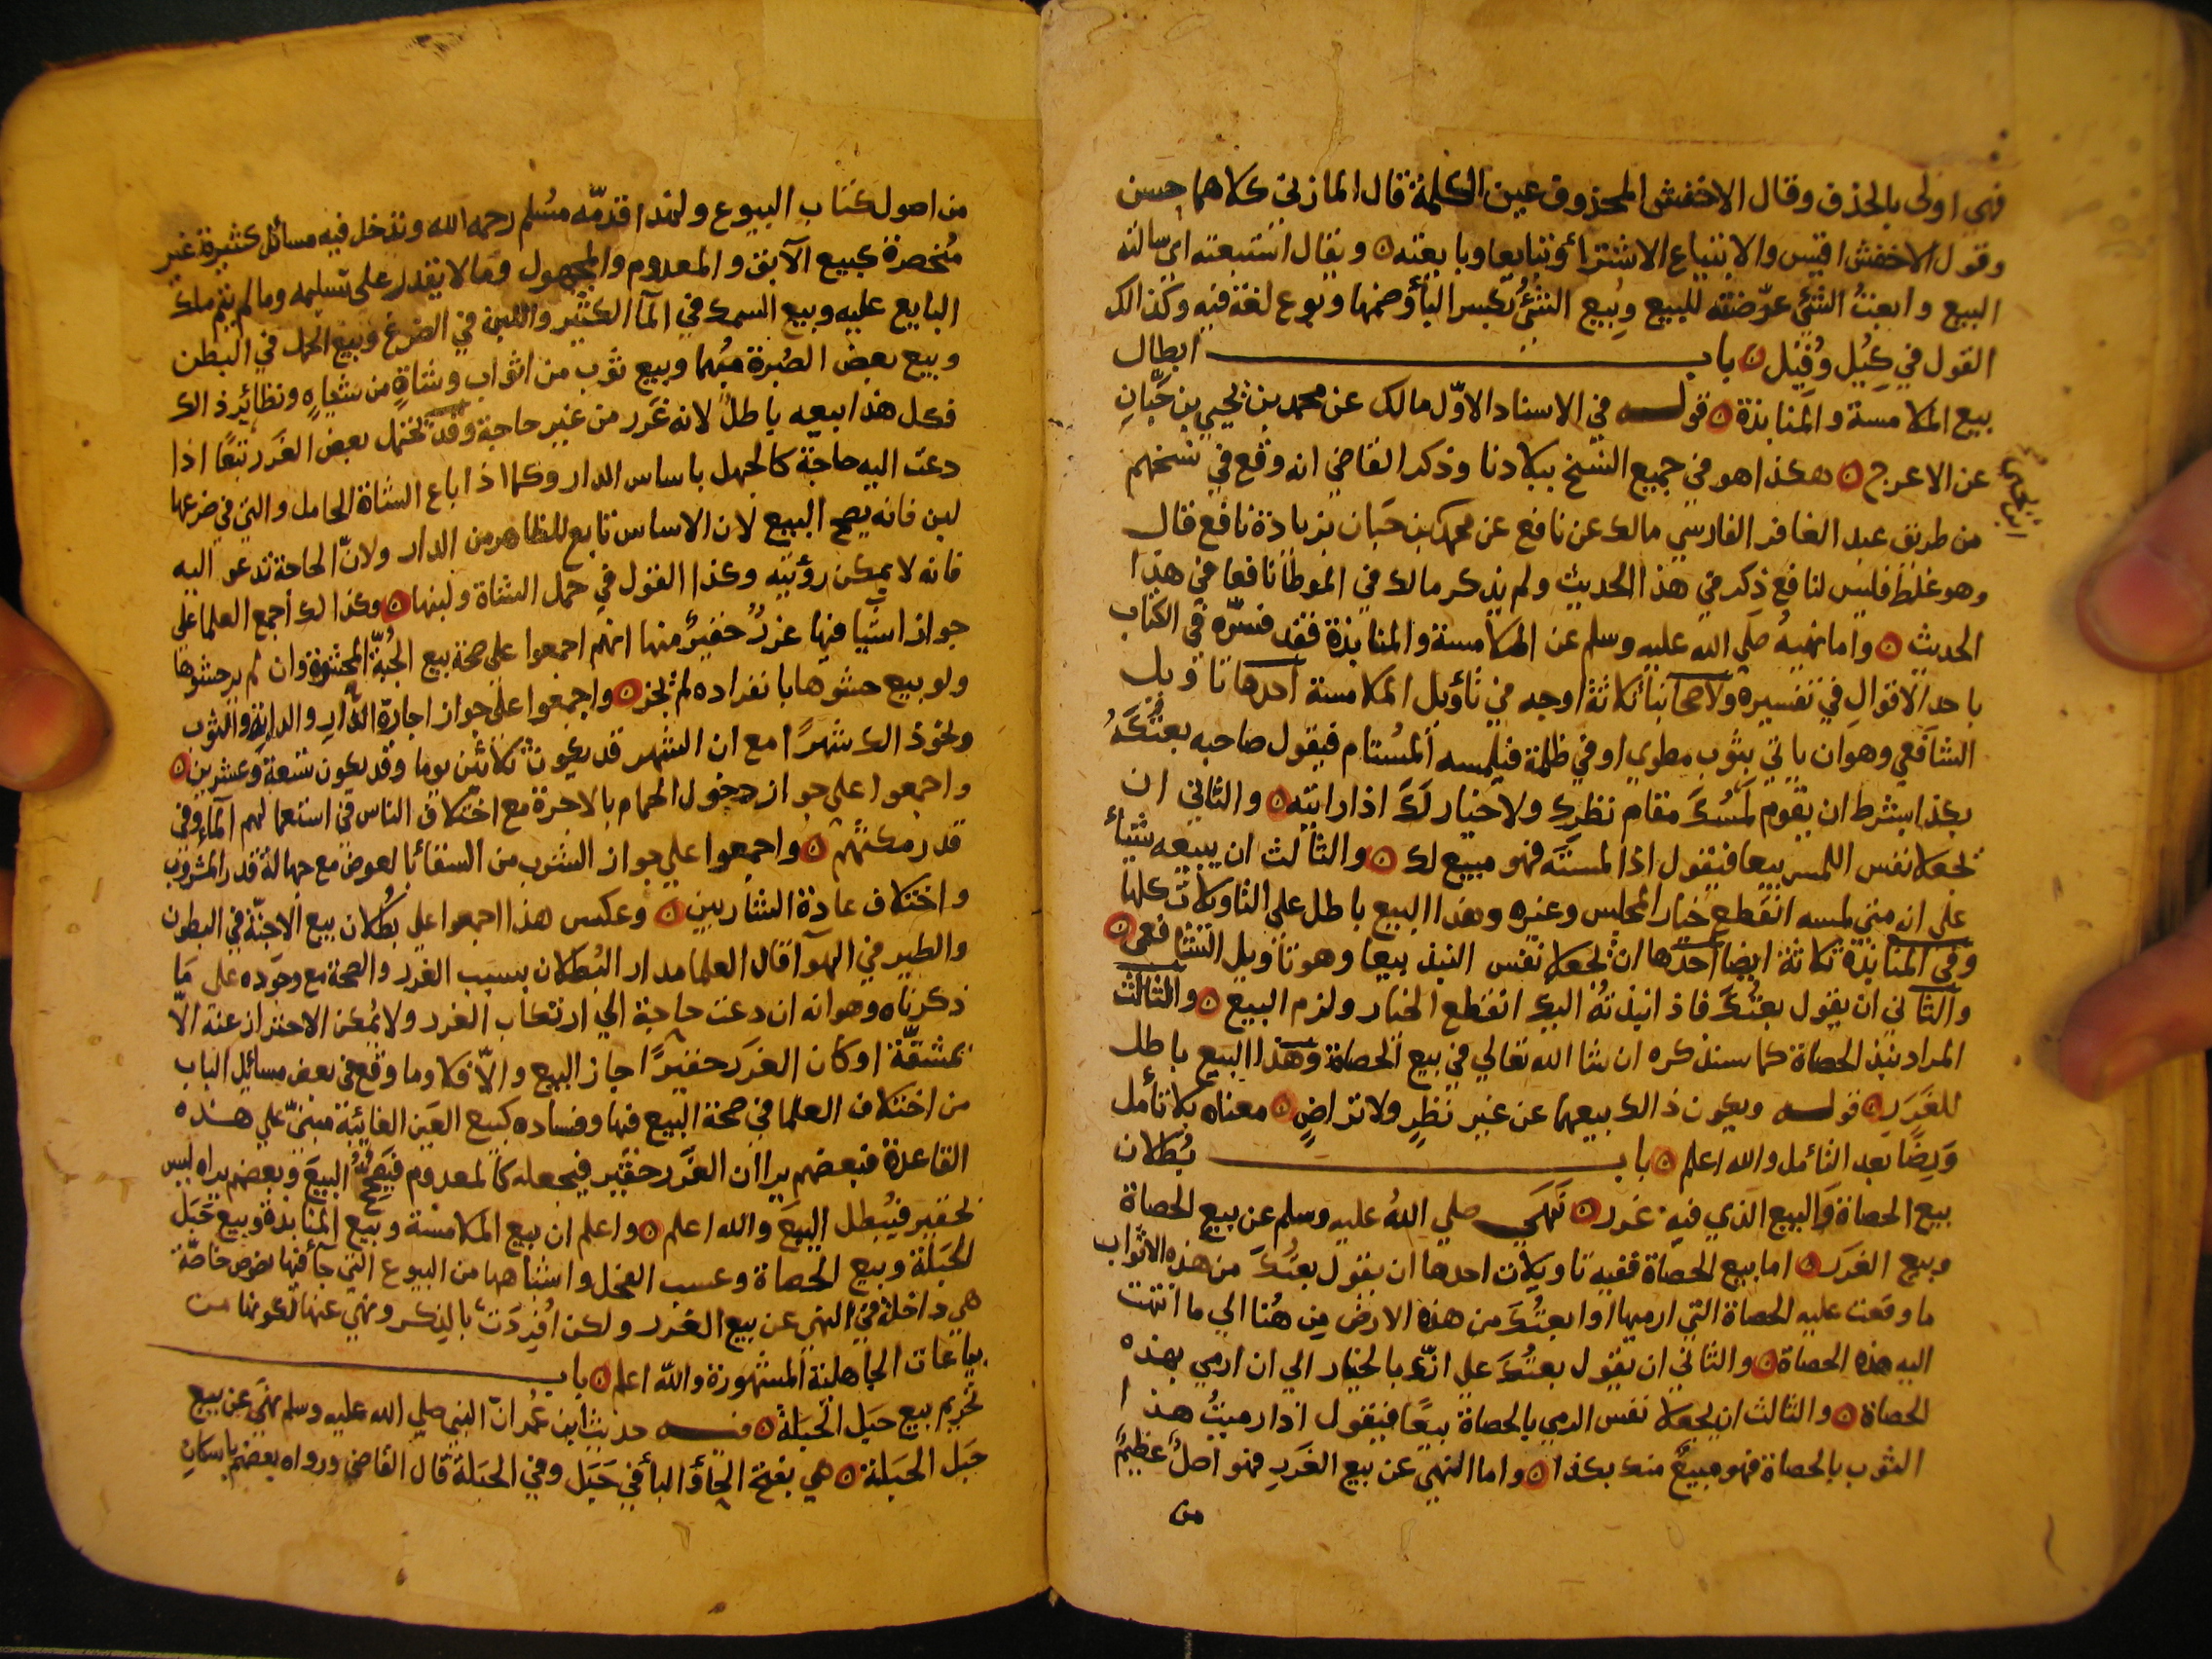 فهي اولى بالحذف وقال الاخفش المحذوف عين الكلمة قال المازني كلاهما حسن
وقول الاخفش اقيس والابتياع الاشتراء وتبايعا وبايعته ٥ ويقال استبعته اي سالته
البيع وابعت الشئ عرضته للبيع وبيع الشئ بكسر الباء وضمها وبوع لغة فيه وكذالك
القول في كيل وقيل ٥ باب ابطال
بيع الملامسة والمنابذة ٥ قوله في الاسناد الاول مالك عن محمد بن يحيي بن حبان
عن الاعرج ٥ هكذا هو في جميع النسخ ببلادنا وذكر القاضي انه وقع في نسخهم
من طريق عبد الغافر الفارسي مالك عن نافع عن محمد بن حبان بزيادة نافع قال
وهو غلط فليس لنافع ذكر في هذا الحديث ولم يذكر مالك في الموطا نافعا في هذا
الحديث ٥ واما نهيه صلي الله عليه وسلم عن الملامسة والمنابذة فقد فسره في الكتاب
باحد الاقوال في تفسيره ولاصحابنا ثلاثة اوجه في تأويل الملامسة احدها تاويل
الشافعي وهو ان ياتي بثوب مطوي او في ظلمة فيلمسه المستام فيقول صاحبه بعتكه
بكذا بشرط ان يقوم لمسك مقام نظرك ولا خيار لك اذا رايته ٥ والثاني ان
يجعلا نفس اللمس بيعا فيقول اذا لمسته فهو مبيع لك ٥ والثالث ان يبيعه شياء
علي انه متي لمسه انقطع خيار المجلس وغيره وهذا البيع باطل علي التاويلات كلها
وفي المنابذة ثلاثة ايضا احدها ان يجعلا نفس النبذ بيعا وهو تاويل الشافعي ٥
والثاني ان يقول بعتك فاذا نبذته اليك انقطع الخيار ولزم البيع ٥ والثالث
المراد نبذ الحصاة كما سنذكره ان شا الله تعالي في بيع الحصاة وهذا البيع باطل
للغرر ٥ قوله ويكون ذالك بيعهما عن غير نظر ولا تراض ٥ معناه بلا تأمل
ورضا بعد التأمل والله اعلم ٥ باب بطلان
بيع الحصاة والبيع الذي فيه غرر ٥ نهى صلي الله عليه وسلم عن بيع الحصاة
وبيع الغرر ٥ اما بيع الحصاة ففيه تاويلات احدها ان يقول بعتك من هذه الاثواب
ما وقعت عليه الحصاة التي ارميها او بعتك من هذه الارض من هنا الي ما انتهت
اليه هذه الحصاة ٥ والثاني ان يقول بعتك علي انك بالخيار الي ان ارمي بهذه
الحصاة ٥ والثالث ان يجعلا نفس الرمي بالحصاة بيعا فيقول اذا رميت هذا
الثوب بالحصاة فهو مبيع منك بكذا ٥ واما النهي عن بيع الغرر فهو اصل عظيم
من
من اصول كتاب البيوع ولهذا قدمه مسلم رحمه الله وتدخل فيه مسائل كثيرة غير
منحصرة كبيع الآبق والمعدوم والمجهول وما لا يقدر على تسليمه وما لم يتم ملك
البايع عليه وبيع السمك في المآ الكثير واللبن في الضرع وبيع الحمل في البطن
وبيع بعض الصبرة مبهما وبيع ثوب من اثواب وشاة من شياه ونظائر ذالك
فكل هذا بيعه باطل لانه غرر من غير حاجة وقد يحتمل بعض الغرر تبعا اذا
دعت اليه حاجة كالجهل باساس الدار وكما اذا باع الشاة الحامل والتي في ضرعها
لبن فانه يصح البيع لان الاساس تابع للظاهر من الدار ولان الحاجة تدعو اليه
فانه لا يمكن رؤيته وكذا القول في حمل الشاة ولبنها ٥ وكذالك اجمع العلما علي
جواز اشيا فيها غرر حقير منها انهم اجمعوا علي صحة بيع الجبة المحشوة وان لم ير حشوها
ولو بيع حشوها بانفراده لم يجز ٥ واجمعوا علي جواز اجارة الدار والدابة والثوب
ونحو ذالك شهرا مع ان الشهر قد يكون ثلاثين يوما وقد يكون تسعة وعشرين ٥
واجمعوا علي جواز دخول الحمام بالاجرة مع اختلاف الناس في استعمالهم المآء وفي
قدر مكثهم ٥ واجمعوا علي جواز الشرب من السقا بالعوض مع جهالة قدر المشروب
واختلاف عادة الشاربين ٥ وعكس هذا اجمعوا علي بطلان بيع الاجنة في البطون
والطير في الهوآ قال العلما مدار البطلان بسبب الغرر والصحة مع وجوده على ما
ذكرناه وهو انه ان دعت حاجة الي ارتكاب الغرر ولا يمكن الاحتراز عنه الا
بمشقة او كان الغرر حقيرا جاز البيع والا فلا وما وقع في بعض مسائل الباب
من اختلاف العلما في صحة البيع فيها وفساده كبيع العين الغائبة مبني علي هذه
القاعدة فبعضهم يرا ان الغرر حقير فيجعله كالمعدوم فيصح البيع وبعضهم يراه ليس
بحقير فيبطل البيع والله اعلم ٥ واعلم ان بيع الملامسة وبيع المنابذة وبيع حبل
الحبلة وبيع الحصاة وعسب الفحل واشباهها من البيوع التي جآ فيها نصوص خاصة
هي داخلة في النهي عن بيع الغرر ولكن افردت بالذكر ونهي عنها لكونها من
بياعات الجاهلية المشهورة والله اعلم ٥ باب
تحريم بيع حبل الحبلة ٥ فيه حديث ابن عمر ان النبي صلي الله عليه وسلم نهى عن بيع
حبل الحبلة ٥ هي بفتح الحآ والبا في حبل وفي الحبلة قال القاضي ورواه بعضهم باسكان